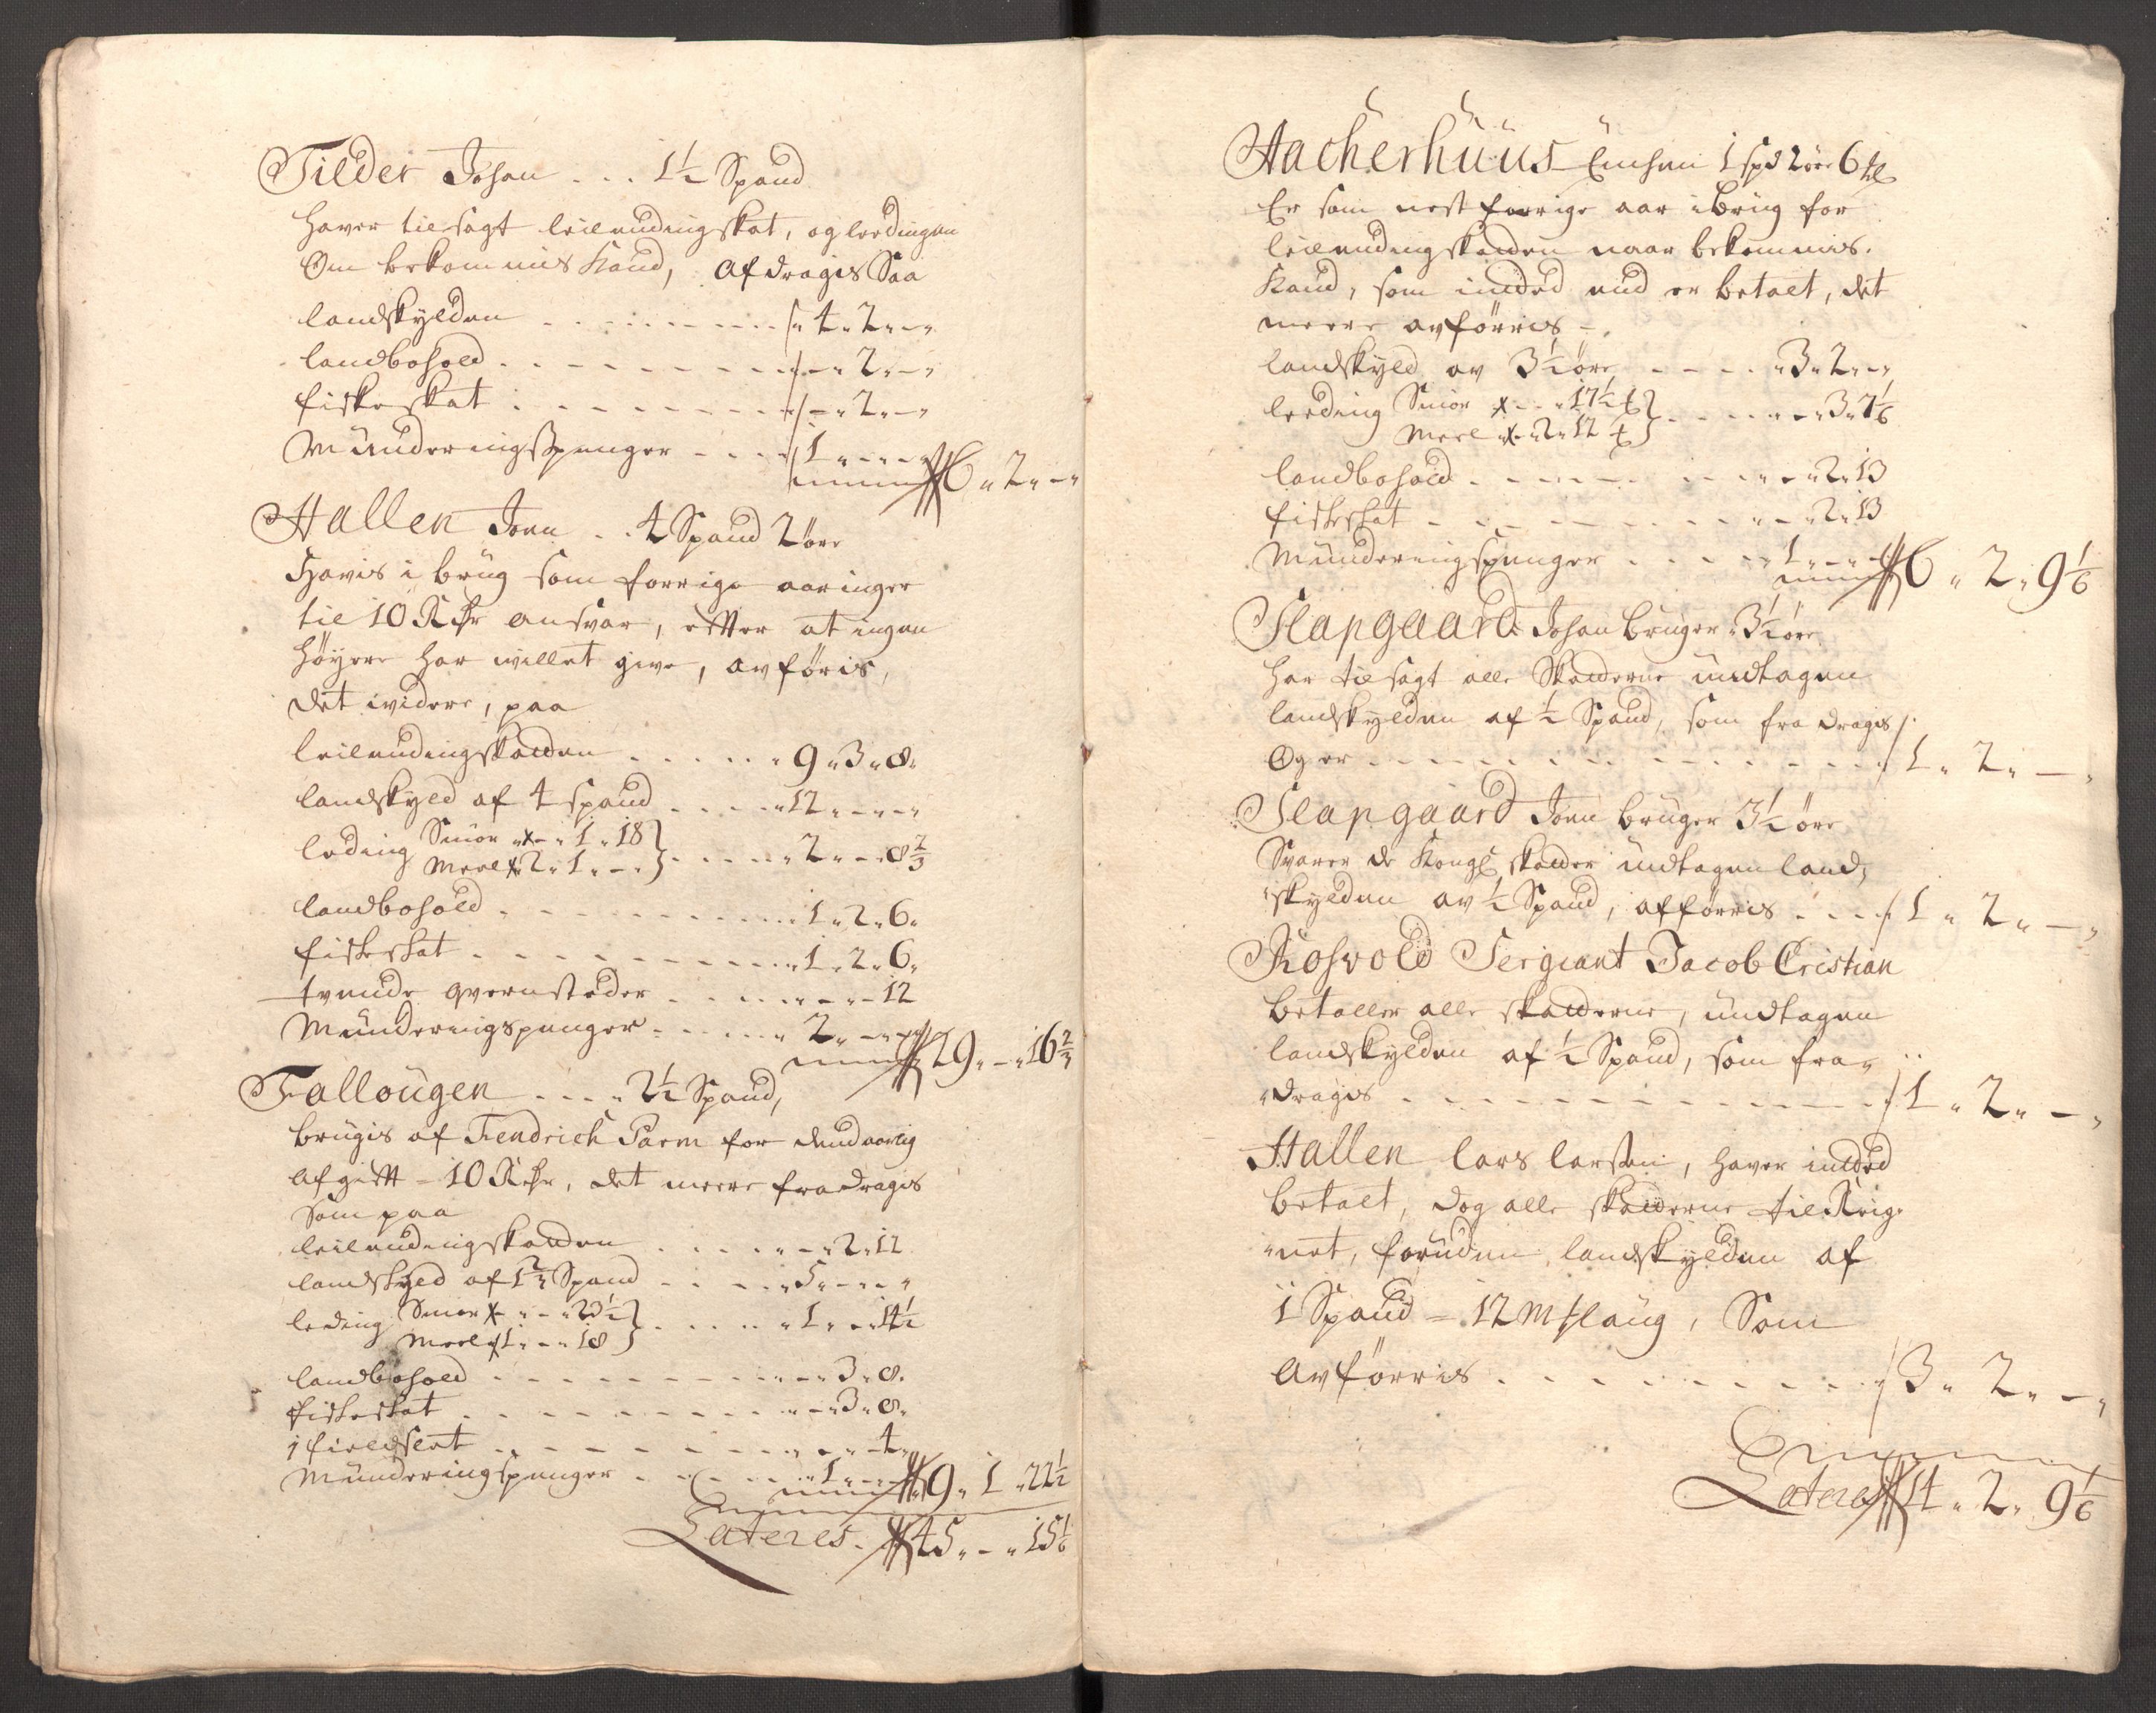 Tilder Johan . . . 1½ Spand
haver tilsagt leilendingskat, og leedingen
Om bekommis Kand, afdragis Saa
landskylden . . . . . . . . . 4 „ 2 „ – „
landbohold . . . . . . . . „ – „ 2 „ – „
fiskeskat . . . . . . . . „ – „ 2 „ – „
Munderingspenger – – – 1 „ – „ – „
6 „ 2 „ – „
Hallen Joen . . 4 Spand 2 öre
Hafvis i brug som forrige aaringer
til 10 Rdr ansvar, efter at ingen
höyere har willet give, avföris,
det widere, paa
leilendingskatten . . . . . „ 9 „ 3 „ 8 „
landskyld af 4 spand . . . . „ 12 „ – „ – „
leding Smör – „ 1 „ 18
Meel 2 „ 1 „ – „ } . . . . . „ 2 „ – „ 8⅔
landbohold . . . . . . . . . „ 1 „ 2 „ 6 „
fiskeskat . . . . . . . . . „ 1 „ 2 „ 6 „
tvende qvernsteder . . . . . . „ – „ – 12
Munderingspenger . . . . . „ 2 „ – „ – „
29 „ – „ 16⅔
Fallougen . . . . 2½ Spand,
brugis af Fendrich Parm for dend aarlig
afgifft – 10 Rdr, det meere fradragis
Som paa
leilendingskatten . . . . . „ – „ 2 „ 12
landskyld af 1⅔ Spand . . . . „ 5 „ – „ – „
leding Smör – „ – „ 23½
Meel 1 „ – „ 18 } . . . . . „ 1 „ – „ 14½
landbohold . . . . . . . . . – „ 3 „ 8 „
fiskeskat . . . . . . . . . „ – „ 3 „ 8 „
1 fieldslet . . . . . . . . . „ – „ 4 „
Munderingspenger . . . . . „ 1 „ – „ – „
9 „ 1 „ 22½
Lateres . 45 „ – „ 15⅙
Aacherhuus Einsmi 1 spd 2 öre 6 
Er som nest forrige aar i brug for
leilendingskatten naar bekommis
Kand, som inded end er betalt, det
meere avförris –
landskyld av 3½ öre . . . . „ 3 „ 2 „ – „
leeding Smör – – „ 17½
Meel „ 2 „ 12 } . . . . „ – „ 3 „ 7⅙
landbohold . . . . . . . . „ – „ 2 „ 13
fiskeskat . . . . . . . . „ – „ 2 „ 13
Munderingspenger . . . . „ 1 „ – „ – „
6 „ 2 „ 9⅙
Slapgaard Johan bruger 3½ öre
har tilsagt alle Skatterne undtagen
landskylden af ½ Spand, som fra dragis
Og er . . . . . . . . . . . . 1 „ 2 „ – „
Slapgaard Joen bruger 3½ öre
Svarer de Kongl skatter undtagen land,
skylden av ½ Spand, afförris . . . 1 „ 2 „ – „
Rosvold Sergiant Jacob Cristian
betaller alle skatterne, undtagen
landskylden af ½ Spand, som fra „
„ dragis . . . . . . . . . . . 1 „ 2 „ – „
Hallen lars larsen, haver inded
betalt, dog alle skatterne til Krig
„ net, foruden landskylden af
1 Spand – 12 Mslaug, Som
avförris . . . . . . . . . . 3 „ 2 „ – „
Lateres 14 „ 2 „ 9⅙